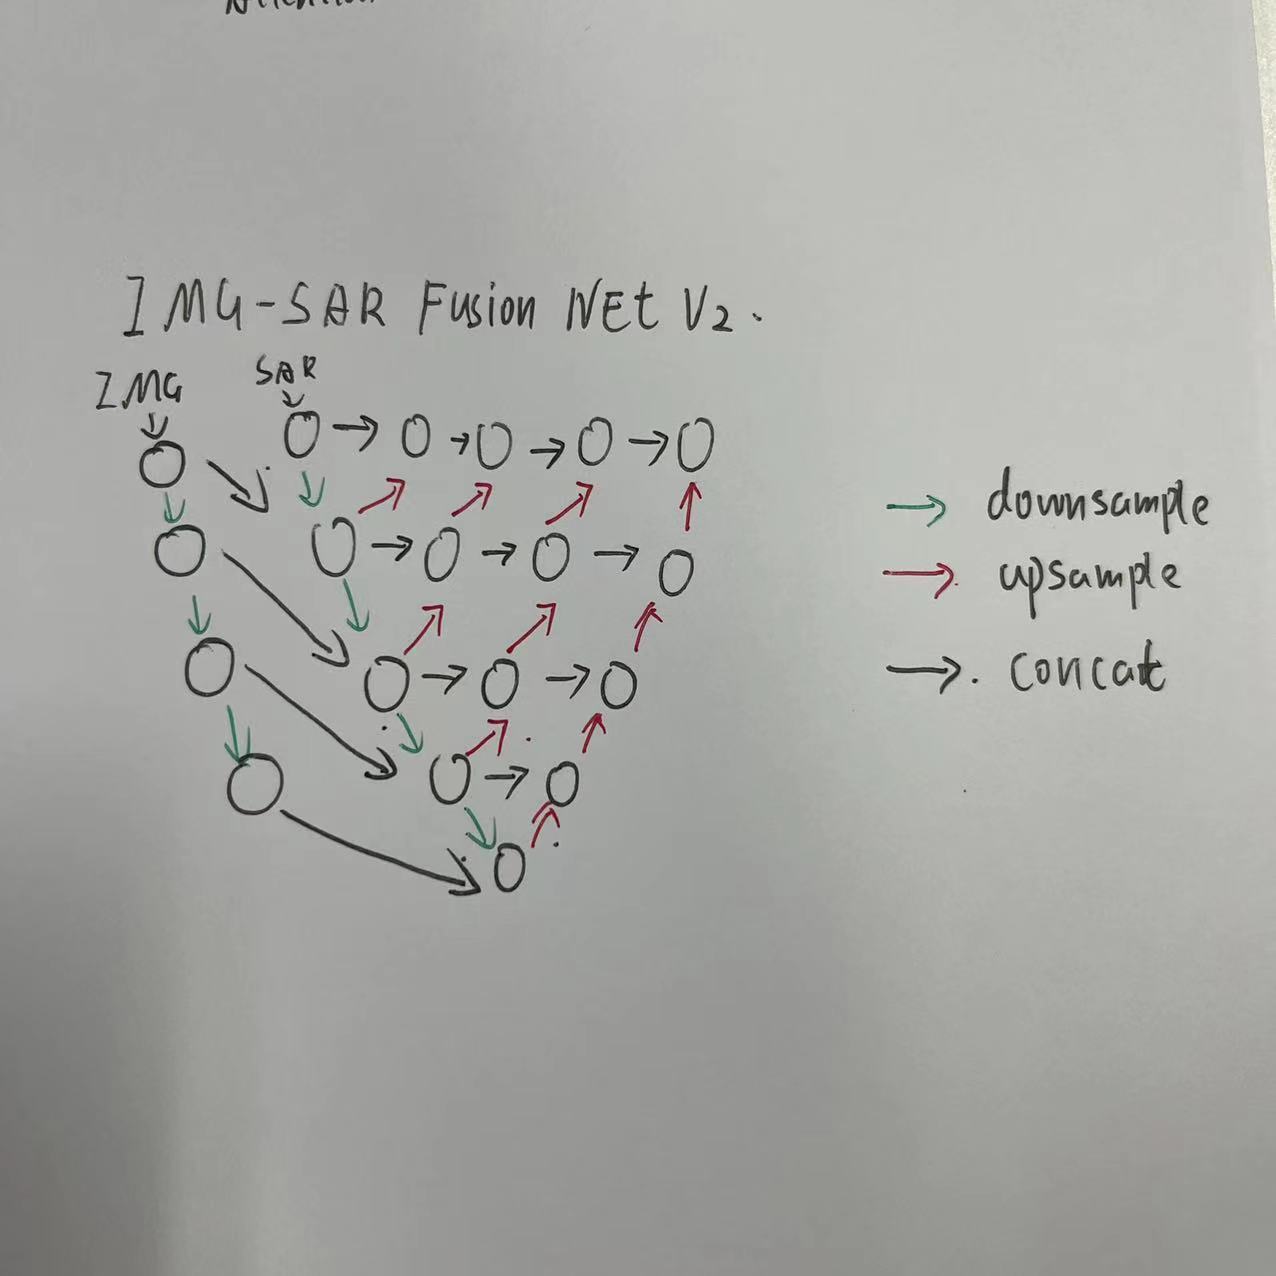 IMG-SAR Fusion NEt V2.
IMG
SAR
downsample
upsample
concat